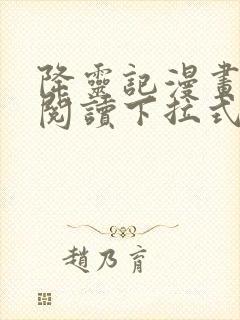 降靈記漫畫
閱讀下拉式
趙乃育